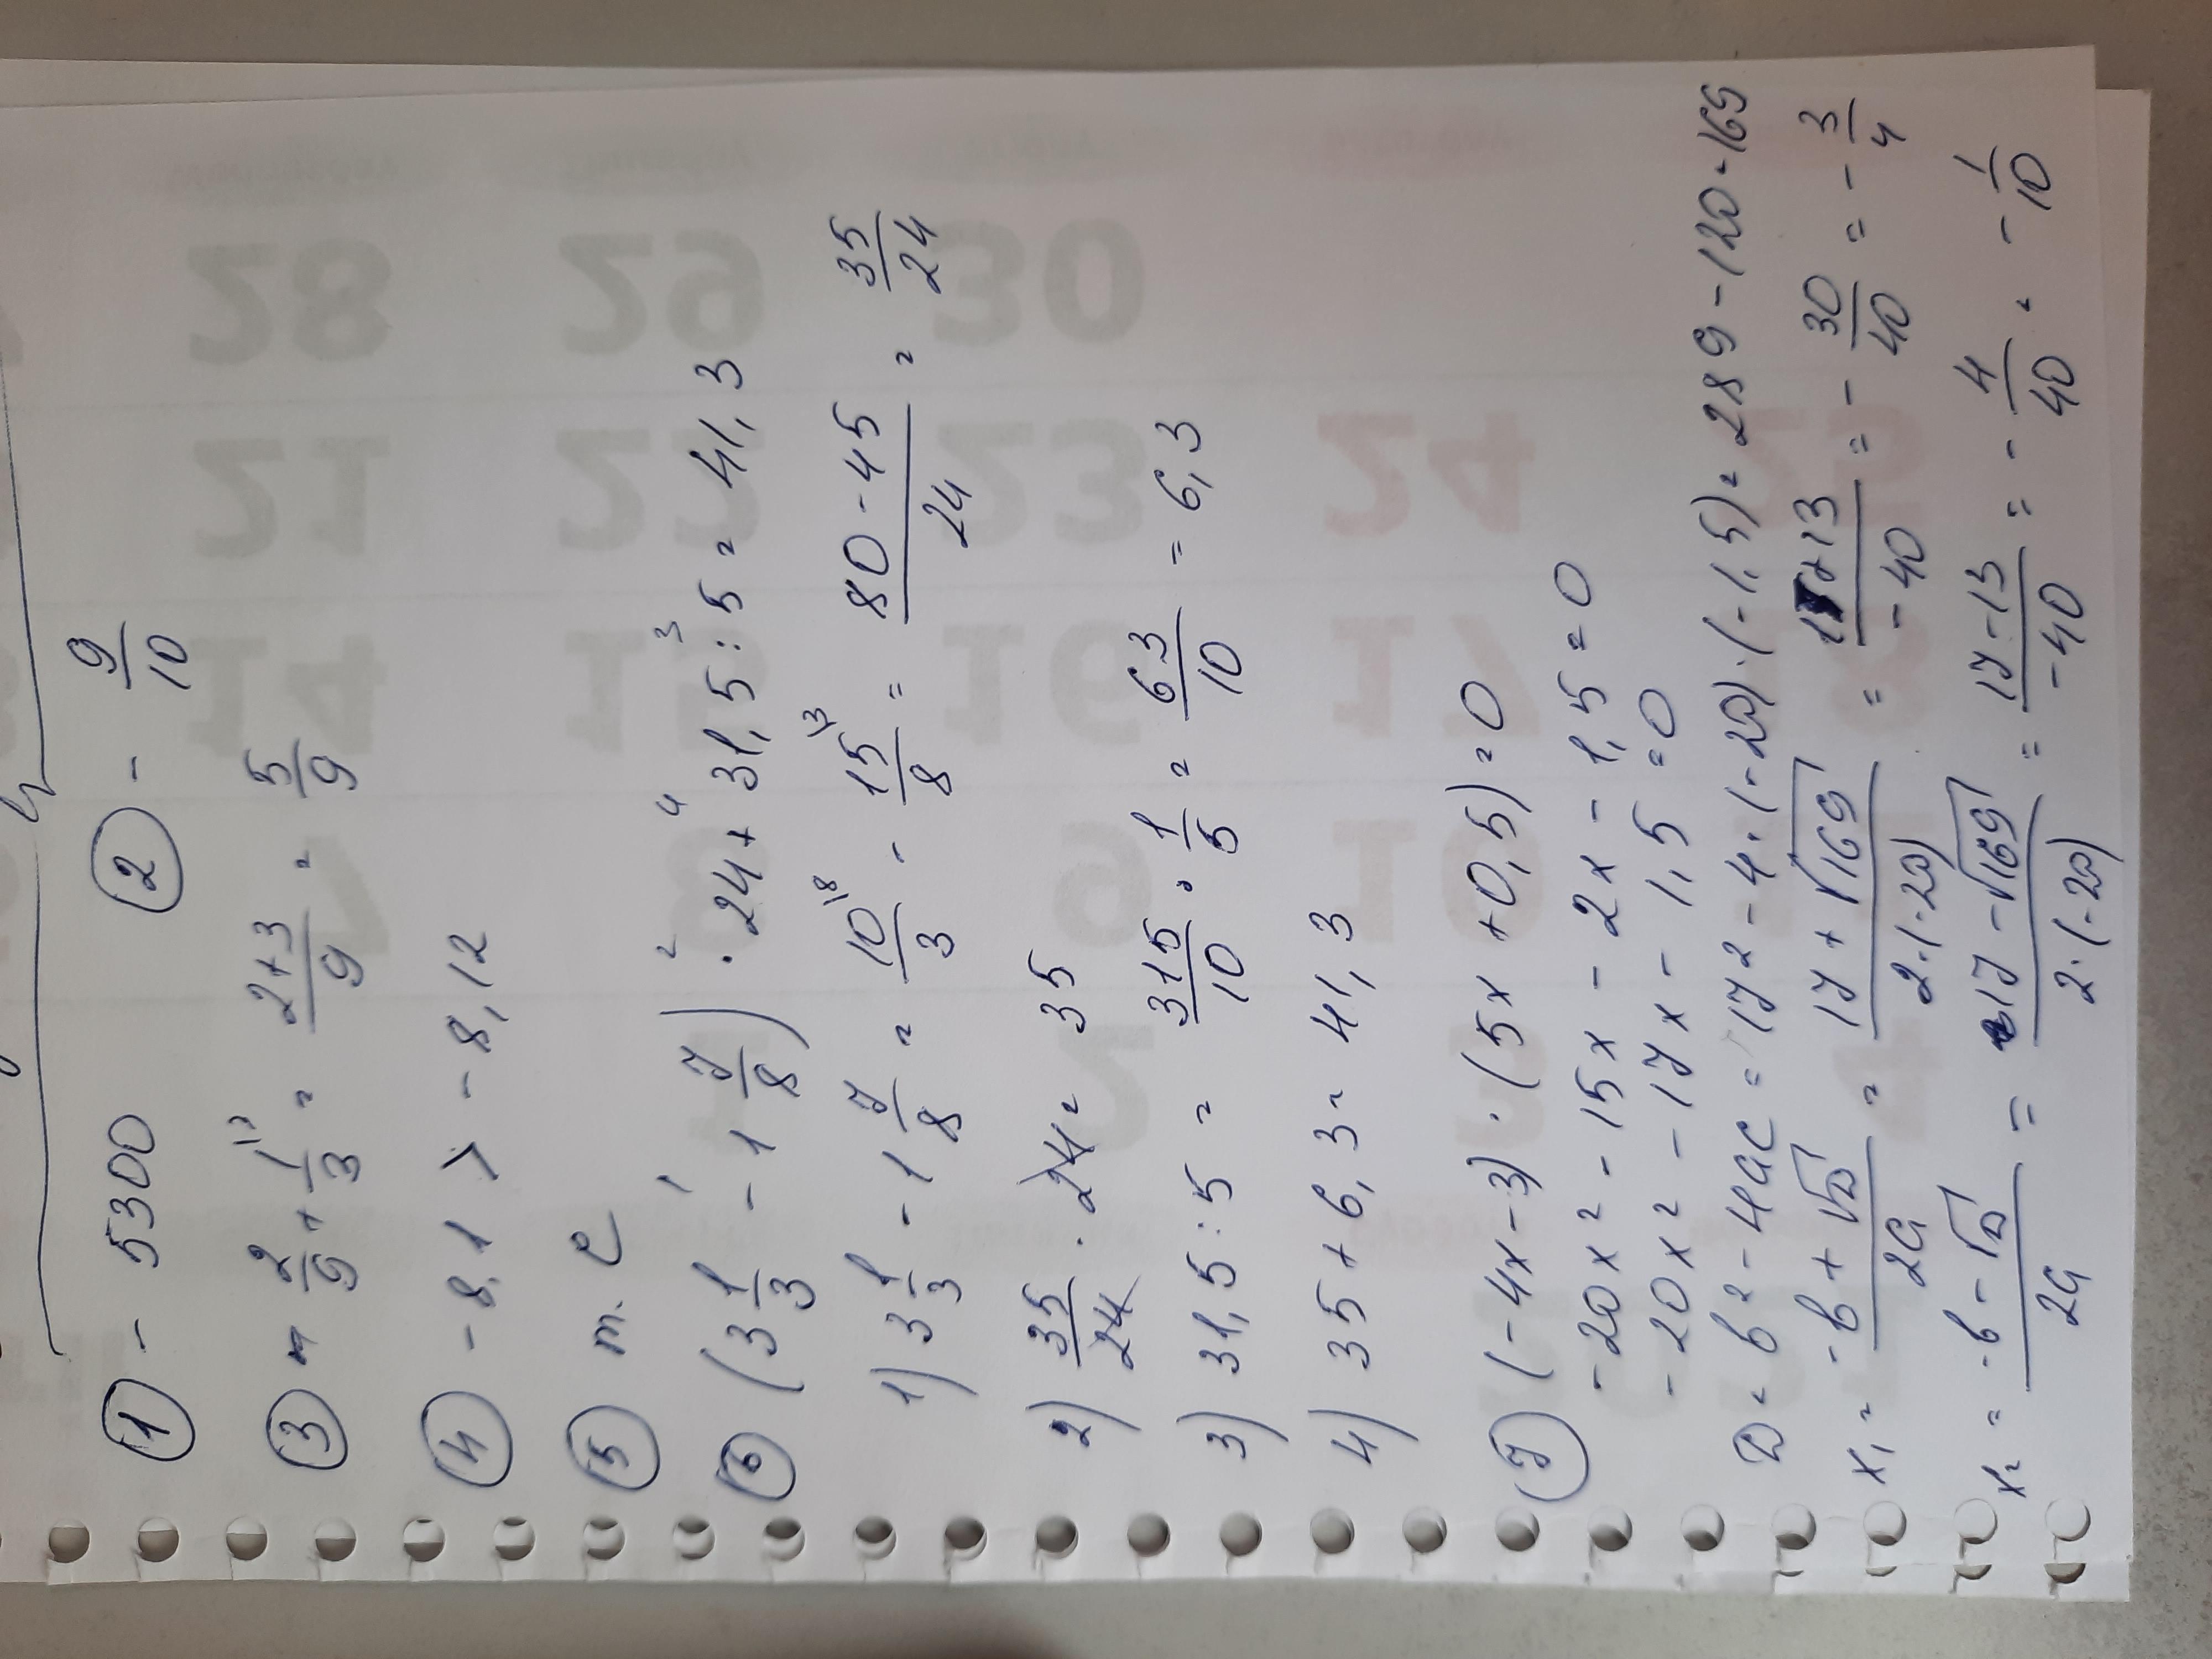 ① - 5300 ② - 9/10
③ 2/9 + 1/3 \3 = 2+3/9 = 5/9
④ - 8,1 > - 8,12
⑤ т. С
⑥ (3 1/3 - 1 7/8) · 24 + 31,5 : 5 = 41,3
1) 3 1/3 - 1 7/8 = 10/3 \8 - 15/8 \3 = 80 - 45/24 = 35/24
2) 35/24 · 24 = 35
3) 31,5 : 5 = 315/10 · 1/5 = 63/10 = 6,3
4) 35 + 6,3 = 41,3
⑦ (-4x - 3) · (5x + 0,5) = 0
-20x² - 15x - 2x - 1,5 = 0
-20x² - 17x - 1,5 = 0
D = b² - 4ac = 17² - 4 · (-20) · (-1,5) = 289 - 120 = 169
x₁ = -b + √D/2a = 17 + √169/2·(-20) = 17+13/-40 = - 30/40 = - 3/4
x₂ = -b - √D/2a = 17 - √169/2·(-20) = 17-13/-40 = - 4/40 = - 1/10
28 29 30
21 22 23 24 25
14 15 16 17 18